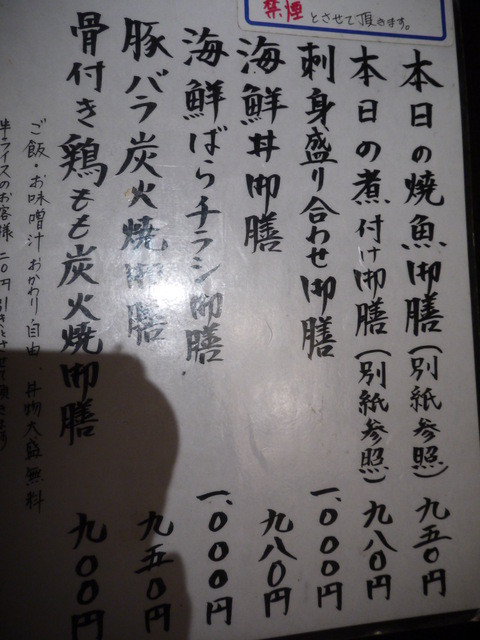 禁煙とさせて頂きます。
本日の焼魚御膳(別紙参照) 九五〇円
本日の煮付け御膳(別紙参照) 九八〇円
刺身盛り合わせ御膳 一、〇〇〇円
海鮮丼御膳 九八〇円
海鮮ばらチラシ御膳 一、〇〇〇円
豚バラ炭火焼御膳 九五〇円
骨付き鶏もも炭火焼御膳 九〇〇円
ご飯・お味噌汁おかわり自由、丼物大盛無料
半ライスのお客様二〇円引きとさせて頂きます